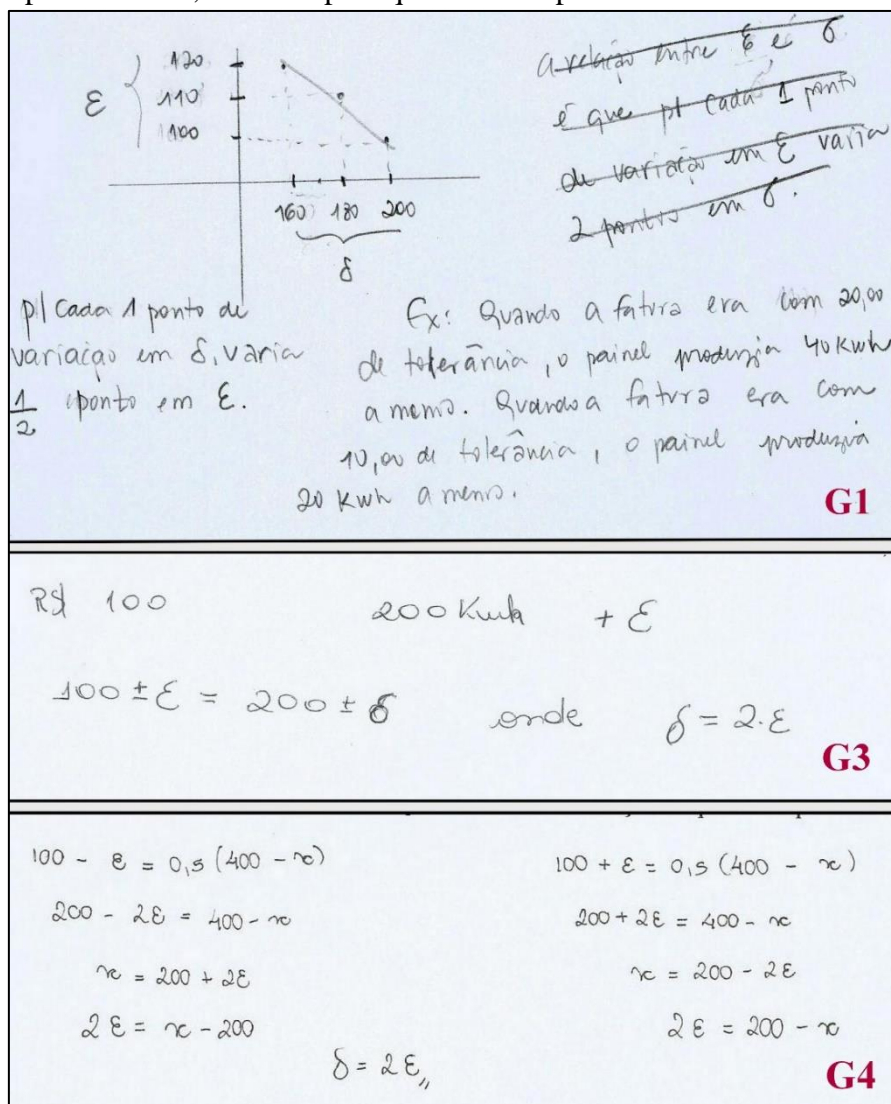 120
110
100
ε
160 180 200
δ
a relação entre ε e δ
é que p/ cada 1 ponto
de variação em ε varia
2 pontos em δ.
p/ Cada 1 ponto de
variação em δ, varia
1/2 ponto em ε.
Ex: Quando a fatura era com 20,00
de tolerância, o painel produzia 40 Kwh
a menos. Quando a fatura era com
10,00 de tolerância, o painel produzia
20 Kwh a menos.
G1
R$ 100 200 Kwh + ε
100 ± ε = 200 ± δ onde δ = 2.ε
G3
100 - ε = 0,5 (400 - x)
200 - 2ε = 400 - x
x = 200 + 2ε
2ε = x - 200
100 + ε = 0,5 (400 - x)
200 + 2ε = 400 - x
x = 200 - 2ε
2ε = 200 - x
δ = 2ε,,
G4